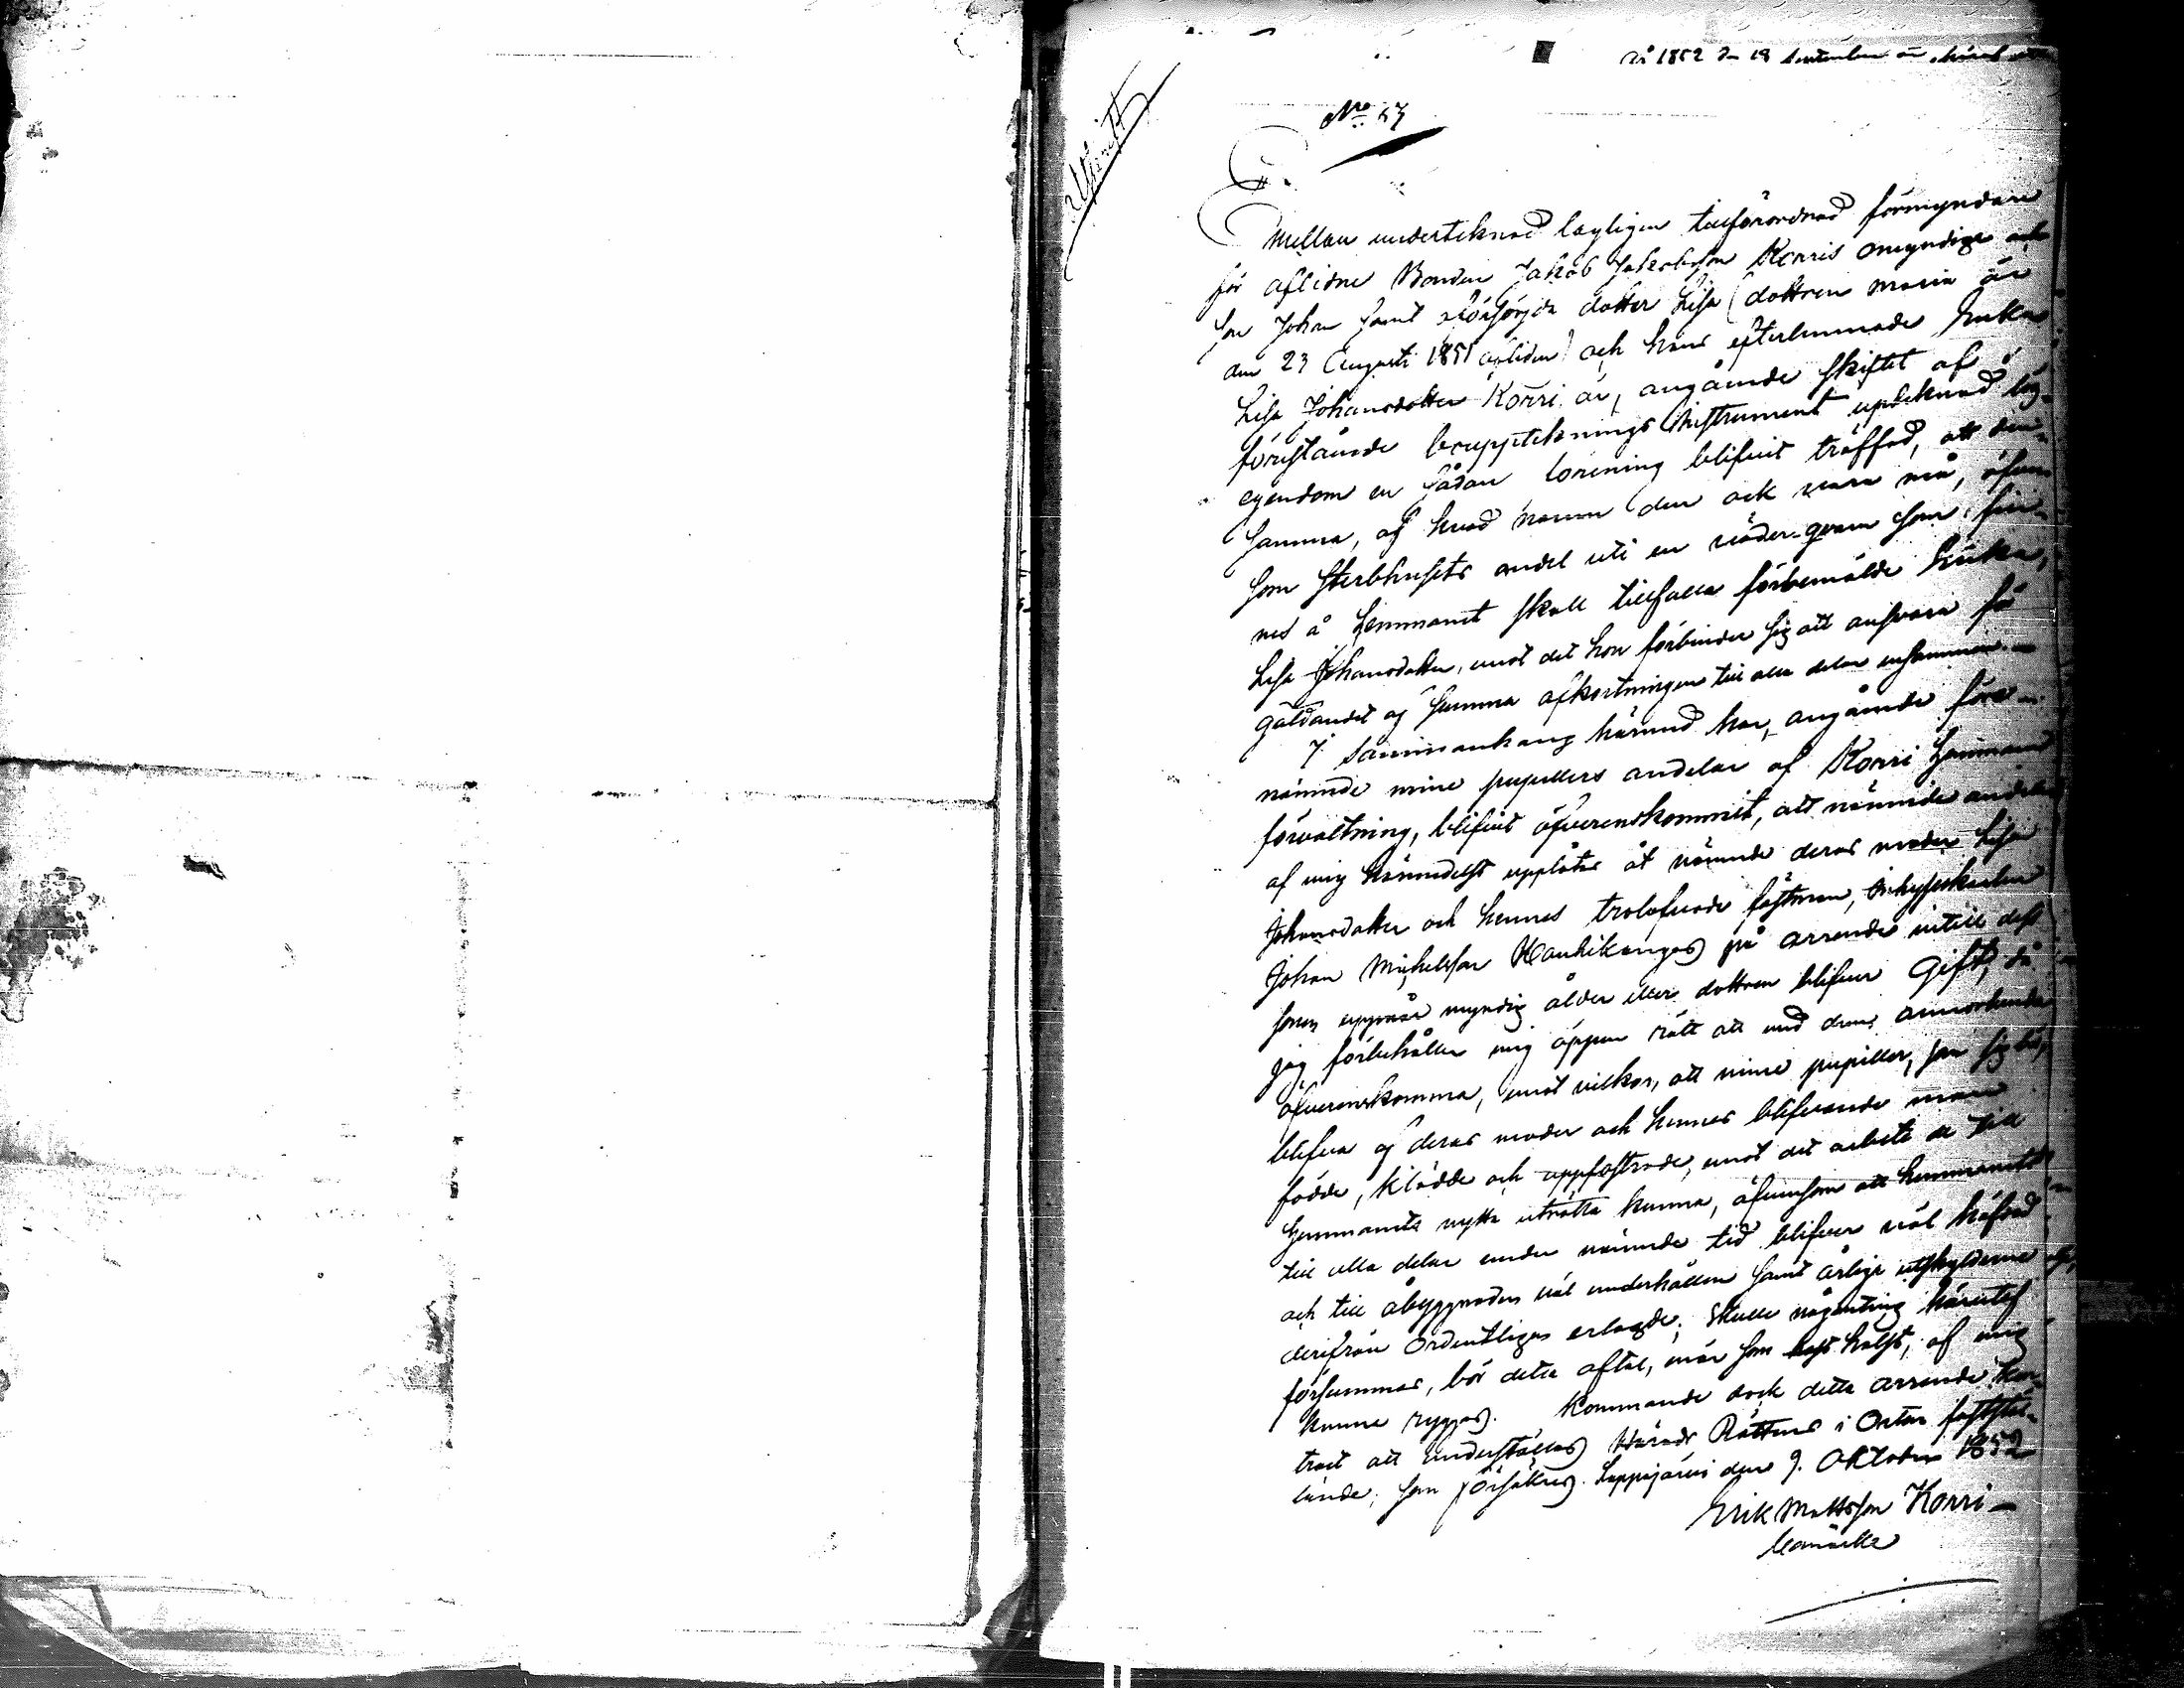 År 1852 den 18 September
Afskrift
No 57
Mellan undertecknad lagligen tillförordnad förmyndare
för aflidne Bonden Jakob Jakobsson Korris omyndige
son Johan samt oförsörjda dotter Lisa (dottren Maria är
den 23 Augusti 1851 afliden) och hans efterlemnade Enka
Lisa Johansdotter Korri är, angående skiftet af
förestående bouppteknings Instrument uptecknad lös-
egendom en sådan förening blifvit träffad, att den-
samma, af hvad namn den ock vara må, äfven-
som Sterbhusets andel uti en väder-qvarn som fin-
nes å hemmanet skall tillfalla förbemälde Enka,
Lisa Johansdotter, emot det hon förbinder sig att ansvara för
gäldandet af samma afkortningen till alla delar ensammen.
I sammanhang härmed har, angående före-
nämnde mine pupillers andelar af Korri hemmans
förvaltning, blifvit öfverenskommit, att nämnde andelar
af mig härmedelst upplåtes åt nämnde deras moder Lisa
Johansdotter och hennes trolofvade fästman, Inhyseskarlen
Johan Michelsson Kauhikangas på arrende intill dess
sonen uppnår myndig ålder eller dottren blifver Gift, då
jag förbehåller mig öppen rätt att med dem annorlunda
öfverenskomma, emot vilkor, att mine pupiller, som sig bör,
blifva af deras moder och hennes blifvande man
födde, klädde och uppfostrade, emot det arbete de till
hemmanets nytta uträtta kunna, äfvensom att hemmanet
till alla delar under nämnde tid blifver väl häfdad
och till åbyggnaden väl underhållen samt årliga utskylderne
derifrån Ordentligen erlagde; Skulle någonting häruti
försummas, bör detta aftal, när som helst, af mig
kunna ryggas. Kommande dock detta arrende kon-
trakt att Underställas Härads Rättens i Orten faststäl-
lande; som försäkras. Lappajärvi den 9. Oktober 1852
Erik Mattsson Korri
bomärke